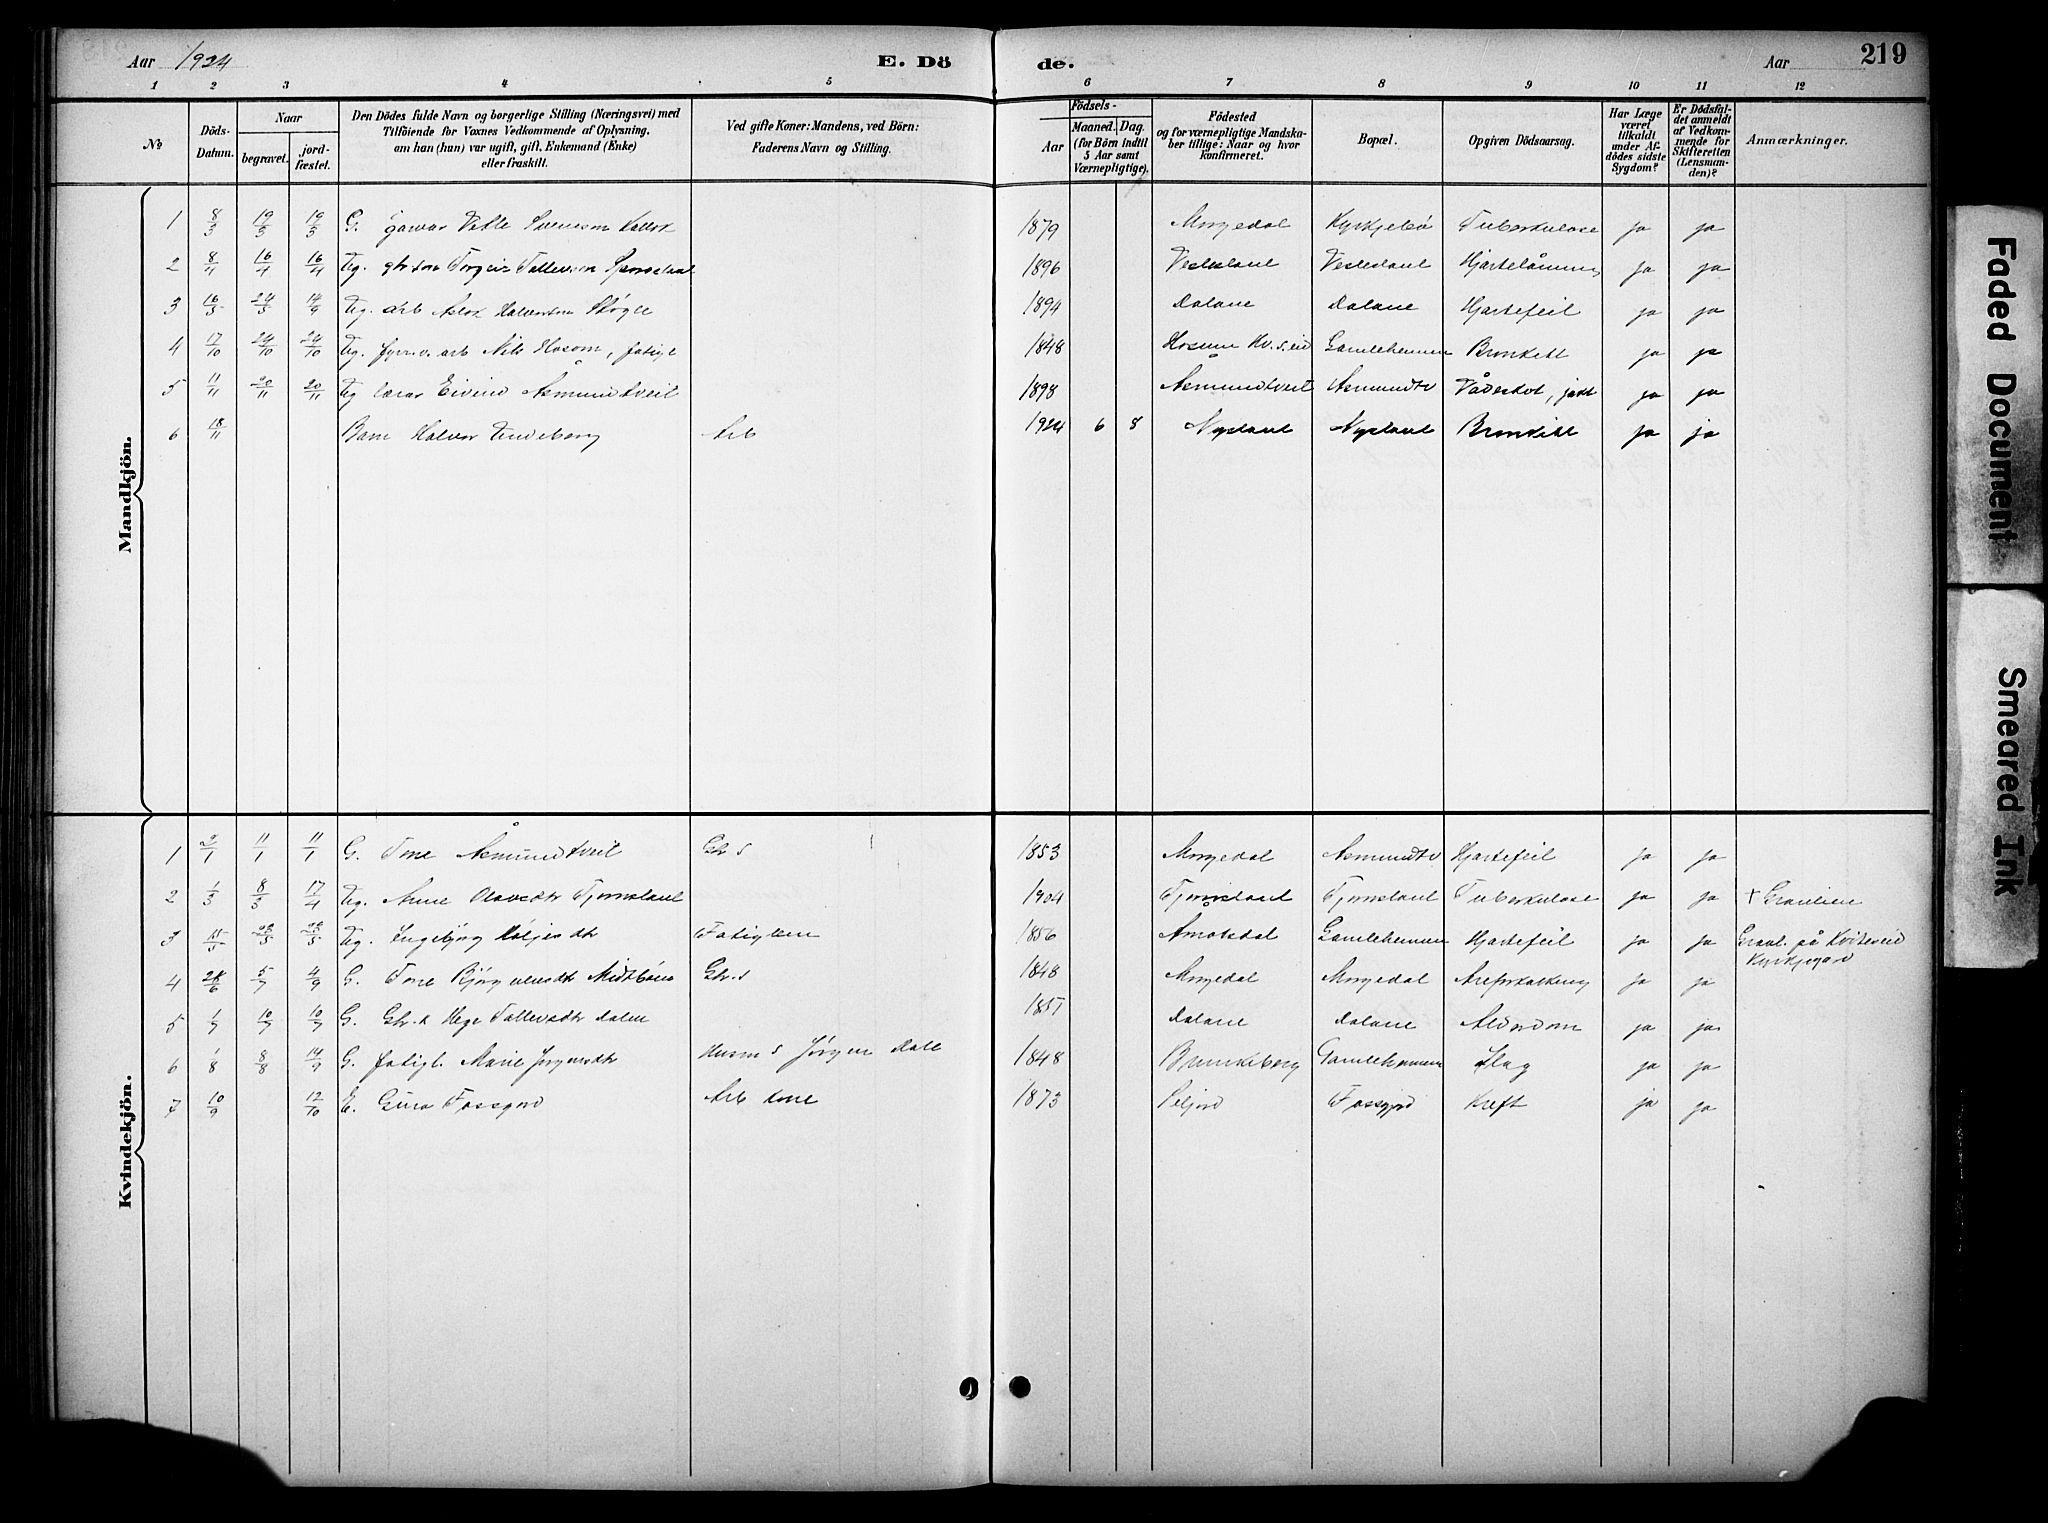 Aar 1924 E. Dö de. Aar 219
1 2 3 4 5 6 7 8 9 10 11 12
No
Döds-Datum.
Naar
begravet. jordfæstet.
Den Dödes fulde Navn og borgerlige Stilling (Næringsvei) med
Tilföiende for Voxnes Vedkommende af Oplysning,
om han (hun) var ugift, gift, Enkemand (Enke)
eller fraskilt.
Ved gifte Koner: Mandens, ved Börn:
Faderens Navn og Stilling.
Födsels-
Aar
Maaned. Dag.
(for Börn indtil
5 Aar samt
Værnepligtige).
Födested
og for værnepligtige Mandskaber tillige: Naar og hvor
konfirmeret.
Bopæl.
Opgiven Dödsaarsag.
Har Læge
været
tilkaldt
under Afdödes sidste
Sygdom?
Er Dödsfaldet anmeldt
af Vedkommende for
Skifteretten
(Lensmanden)?
Anmærkninger.
Mandkjön.
1 8/3 19/3 19/3 G. Valle 1879 Morgedal Kyrkjebö Tuberkulose ja ja
2 8/4 16/4 16/4 Ug. Torgeir Tallevson 1896 Vesleslaat Vesleslaat Hjartelåming ja ja
3 16/5 24/5 14/9 Ug. arb Aslak Halvorson 1894 Dalane Dalane Hjartefeil ja ja
4 17/10 24/10 24/10 Ug. fyrr.v. arb Nils Hosom, fatigl 1848 Hosum Kv.s.eid Gamleheimen Bronkitt ja ja
5 11/11 20/11 20/11 Ug lærar Eivind Åsmundtveit 1898 Åsmundtveit Åsmundtv Vådeskot, jakt ja ja
6 18/11 Barn Halvor Lindeborg Arb 1924 6 8 Nysland Nysland Bronkitt ja ja
Kvindekjön.
1 2/1 11/1 11/1 G. Tone Åsmundtveit Gbr s 1853 Morgedal Åsmundtv Hjartefeil ja ja
2 1/3 8/3 17/4 Ug. Anne Olavsdtr Tjønnslaat 1904 Tjønnsland Tjønnslaat Tuberkulose ja ja + Gravlien
3 15/5 23/5 23/5 Ug. Ingebjørg Høljesdtr Fatiglem 1856 Åmotsdal Gamleheimen Hjartefeil ja ja Gravl. på Kviteseid
Kyrkjegard
4 28/6 5/7 4/9 G. Tone Midtbøen Gbr.s 1848 Morgedal Morgedal Areforkalking ja ja
5 1/7 10/7 10/7 G. Gbr.k Hege Tallevsdtr Dalen 1851 Dalane Dalane Alderdom ja ja
6 1/8 8/8 14/9 G. fatigl. Marie Jørgensdtr Husm s Jørgen Dale 1848 Brunkeberg Gamleheimen Slag ja ja
7 10/9 12/10 E. Guro Fossgard Arb kone 1873 Seljord Fossgard Kreft ja ja
Faded Document
Smeared Ink